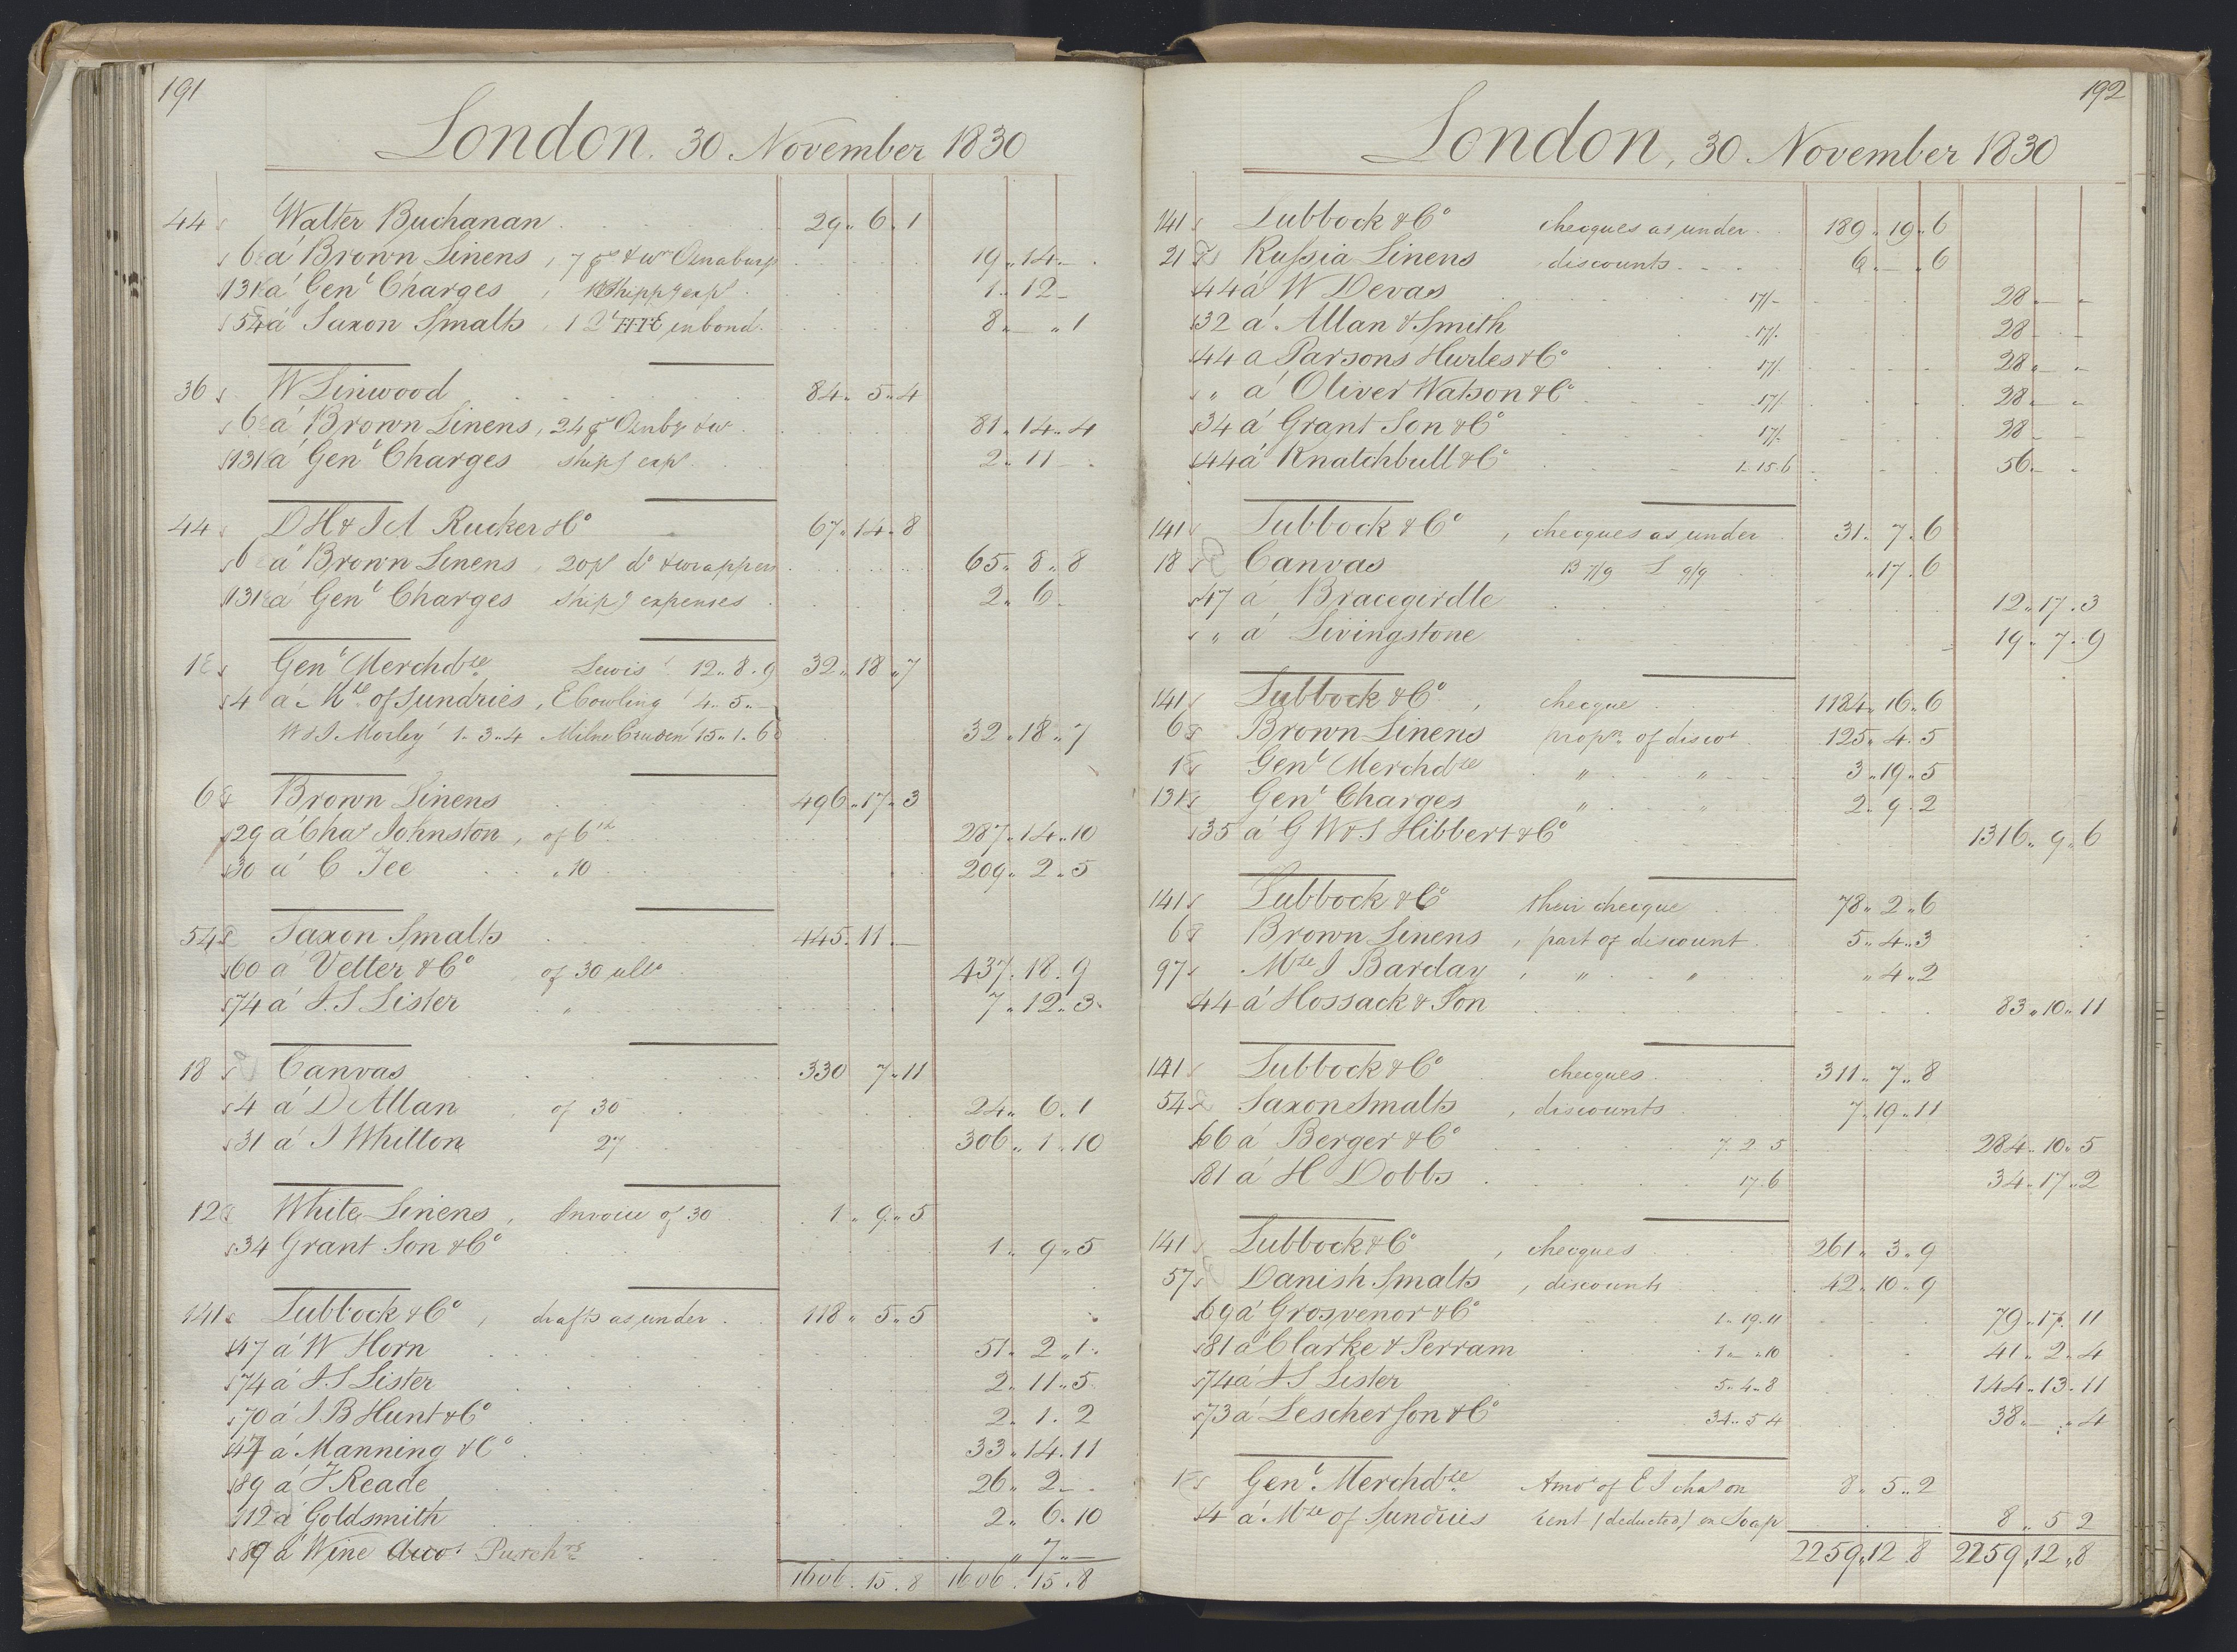 191
London. 30 November 1830
44 Walter Buchanan 29 " 6 " 1
6 á Brown Linens, 7 ps & wr Oznaburg 19 " 14 " —
131 á Genl Charges, Shippg exps 1 " 12 —
54 á Saxon Smalts, 1 Ct FFFE in bond 8 " — " 1
36 W Linwood 84 " 5 " 4
6 á Brown Linens, 24 ps Oznbg & w 81 " 14 " 4
131 á Genl Charges shipg exps 2 " 11 —
44 D H & J A Rucker & Co 67 " 14 " 8
6 á Brown Linens, 20 ps do & wrappers 65 " 8 " 8
131 á Genl Charges shipg expenses 2 " 6 —
1 Genl Merchdze Lewis 12 " 8 " 9 32 " 18 " 7
4 á Mze of Sundries, E Cowling 4 " 5 " —
W & J Morley 1 " 3 " 4 Milne Cruden 15 " 1 " 6 32 " 18 " 7
6 Brown Linens 496 " 17 " 3
29 á Chas Johnston, of 6th 287 " 14 " 10
30 á C Tee " 10 209 " 2 " 5
54 Saxon Smalts 445 " 11 " —
60 á Vetter & Co of 30 ulto 437 " 18 " 9
74 á J. S Lister " 7 " 12 " 3
18 Canvas 330 7 " 11
4 á D Allan of 30 24 " 6 " 1
31 á J Whitton 27 306 " 1 " 10
12 White Linens, Invoice of 30 1 " 9 " 5
34 Grant Son & Co 1 " 9 " 5
141 Lubbock & Co, drafts as under 118 " 5 " 5
47 á W Horn 51 " 2 " 1
74 á J S Lister 2 " 11 " 5
70 á J B Hunt & Co 2 " 1 " 2
47 á Manning & Co 33 " 14 " 11
89 á J Reade 26 " 2 " —
112 á Goldsmith 2 " 6 " 10
89 á Wine Acct Purchrs " 7 " —
1606 " 15 " 8 1606 " 15 " 8
192
London, 30 November 1830
141 Lubbock & Co checques as under 189 " 19 " 6
21 Russia Linens discounts 6 " — " 6
44 á W Devas 17/- 28 " — "
32 á Allan & Smith 17/- 28 " — —
44 a Parsons Hurles & Co 17/- 28 " — "
" á Oliver Watson & Co 17/- 28 " — "
34 á Grant Son & Co 17/- 28 " — —
44 á Knatchbull & Co 1 " 15 " 6 56 " — "
141 Lubbock & Co, checques as under 31 " 7 " 6
18 Canvas B 7/9 L 9/9 " 17 " 6
47 á Bracegirdle 12 " 17 " 3
" á Livingstone 19 " 7 " 9
141 Lubbock & Co, checque 1184 " 16 " 6
6 Brown Linens propn of discot 125 " 4 " 5
1 Genl Merchdze " " 3 " 19 " 5
131 Genl Charges " " 2 " 9 " 2
35 á G W & S Hibbert & Co 1316 " 9 " 6
141 Lubbock & Co their checque 78 " 2 " 6
6 Brown Linens, part of discount 5 " 4 " 3
97 Mze J Barclay, " " " 4 " 2
44 á Hossack & Son 83 " 10 " 11
141 Lubbock & Co checques 311 " 7 " 8
54 Saxon Smalts, discounts 7 " 19 " 11
66 á Berger & Co 7 " 2 " 5 284 " 10 " 5
81 á H Dobbs 17 " 6 34 " 17 " 2
141 Lubbock & Co, checques 261 " 3 " 9
57 Danish Smalts, discounts 42 " 10 " 9
69 á Grosvenor & Co 1 " 19 " 11 79 " 17 " 11
81 á Clarke & Perram 1 " — " 10 41 " 2 " 4
74 á J S Lister 5 " 4 " 8 144 " 13 " 11
73 á Lescher Son & Co 34 " 5 4 38 " — " 4
1 Genl Merchdze Amot of E I chas on 8 " 5 " 2
4 á Mze of Sundries Cent (deducted) on Soap 8 " 5 2
2259 " 12 8 2259 " 12 " 8